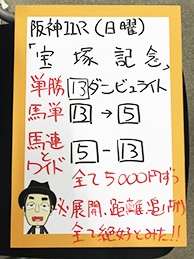 阪神11R(日曜)
「宝塚記念」
単勝 13 ダンビュライト
馬単 13 → 5
馬連とワイド 5 - 13
全て5000円ずつ
展開、距離、追い切り
全て絶好とみた!!